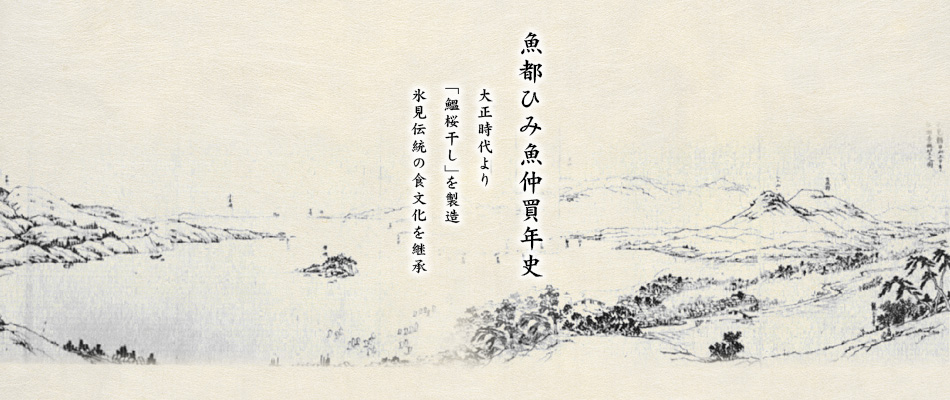 魚都ひみ魚仲買年史
大正時代より
「鰮桜干し」を製造
氷見伝統の食文化を継承